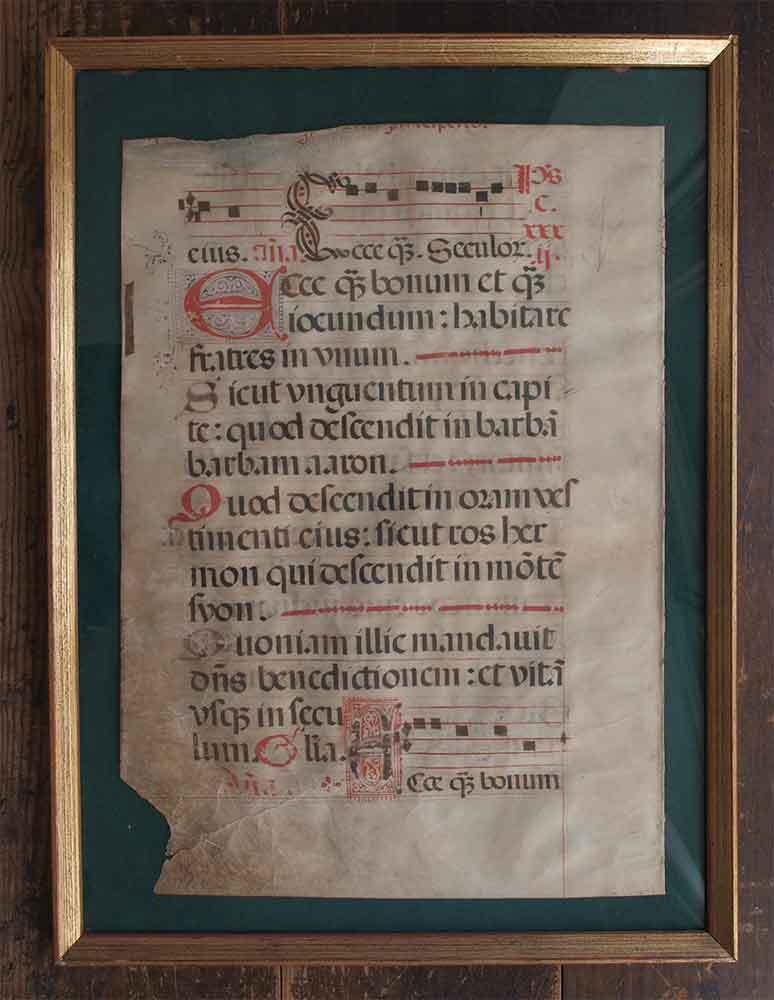 eius. añа. Ecce q̃3. Seculor. p̄s. C. xxxij.
Ecce q̃3 bonum et q̃3
iocundum : habitare
fratres in vnum.
Sicut vnguentum in capi
te : quod descendit in barbā
barbam aaron.
Quod descendit in oram ves
timenti eius : sicut ros her
mon qui descendit in mōtē
syon.
Quoniam illic mandauit
dñs benedictionem : et vitā
vsq3 in secu
lum. Glia.
Añа. Ecce q̃3 bonum